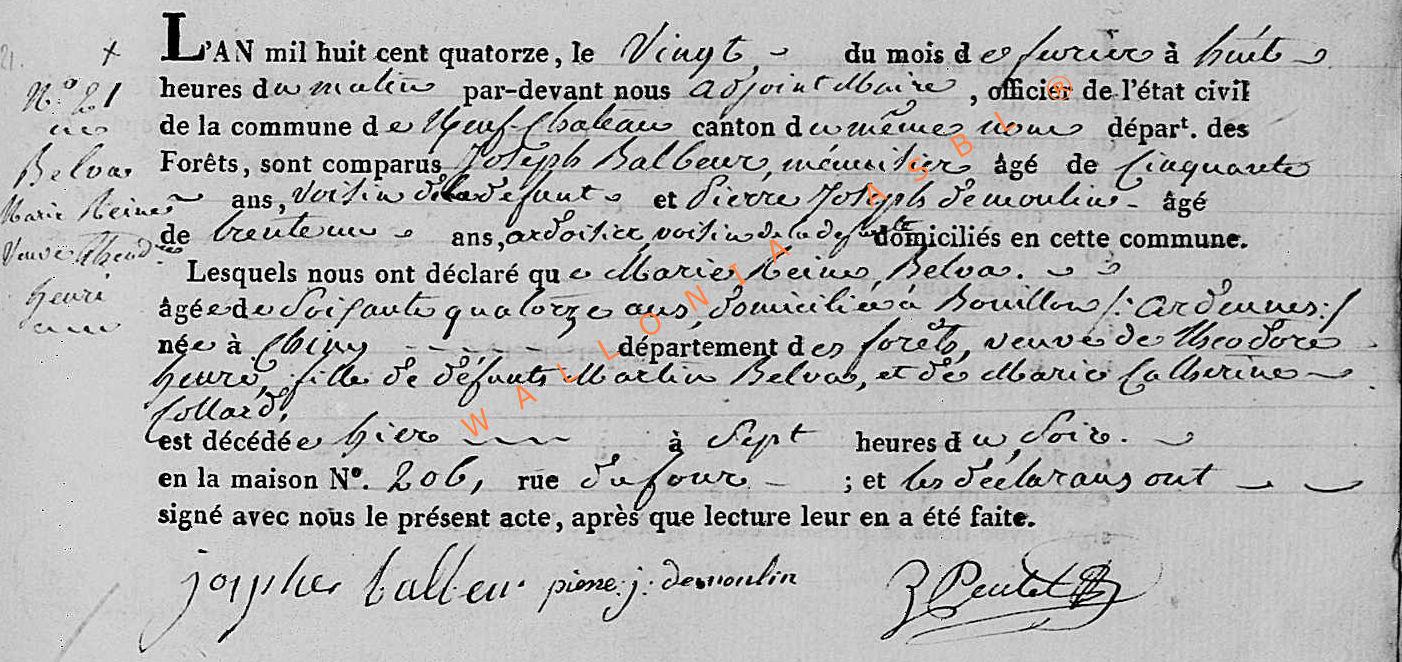 21.
+
N.° 21
Belva
Marie Reine
Veuve Theodore
henri
L'AN mil huit cent quatorze, le Vingt, du mois de fevrier à huit
heures du matin par-devant nous adjoint Maire, officier de l'état civil
de la commune de Neuf-Chateau canton du même nom dépar.t des
Forêts, sont comparus Joseph Balbeur, ménuisier âgé de Cinquante
ans, voisin de la defunte et Pierre Joseph demoulin - âgé
de trente un ans, ardoisier, voisin de la defunte domiciliés en cette commune.
Lesquels nous ont déclaré que Marie Reine Belva.
âgée de Soixante quatorze ans, domiciliée à Bouillon /: ardennes :/
née à Chiny département des forêts, veuve de Theodore
henri, fille de défunts Martin Belva, et de Marie Catherine
Collard,
est décédée hier à Sept heures du Soir.
en la maison N°. 206, rue du four ; et les déclarans ont
signé avec nous le présent acte, après que lecture leur en a été faite.
joseph balbeur pierre. j. demoulin
WALLONIA ASBL ®